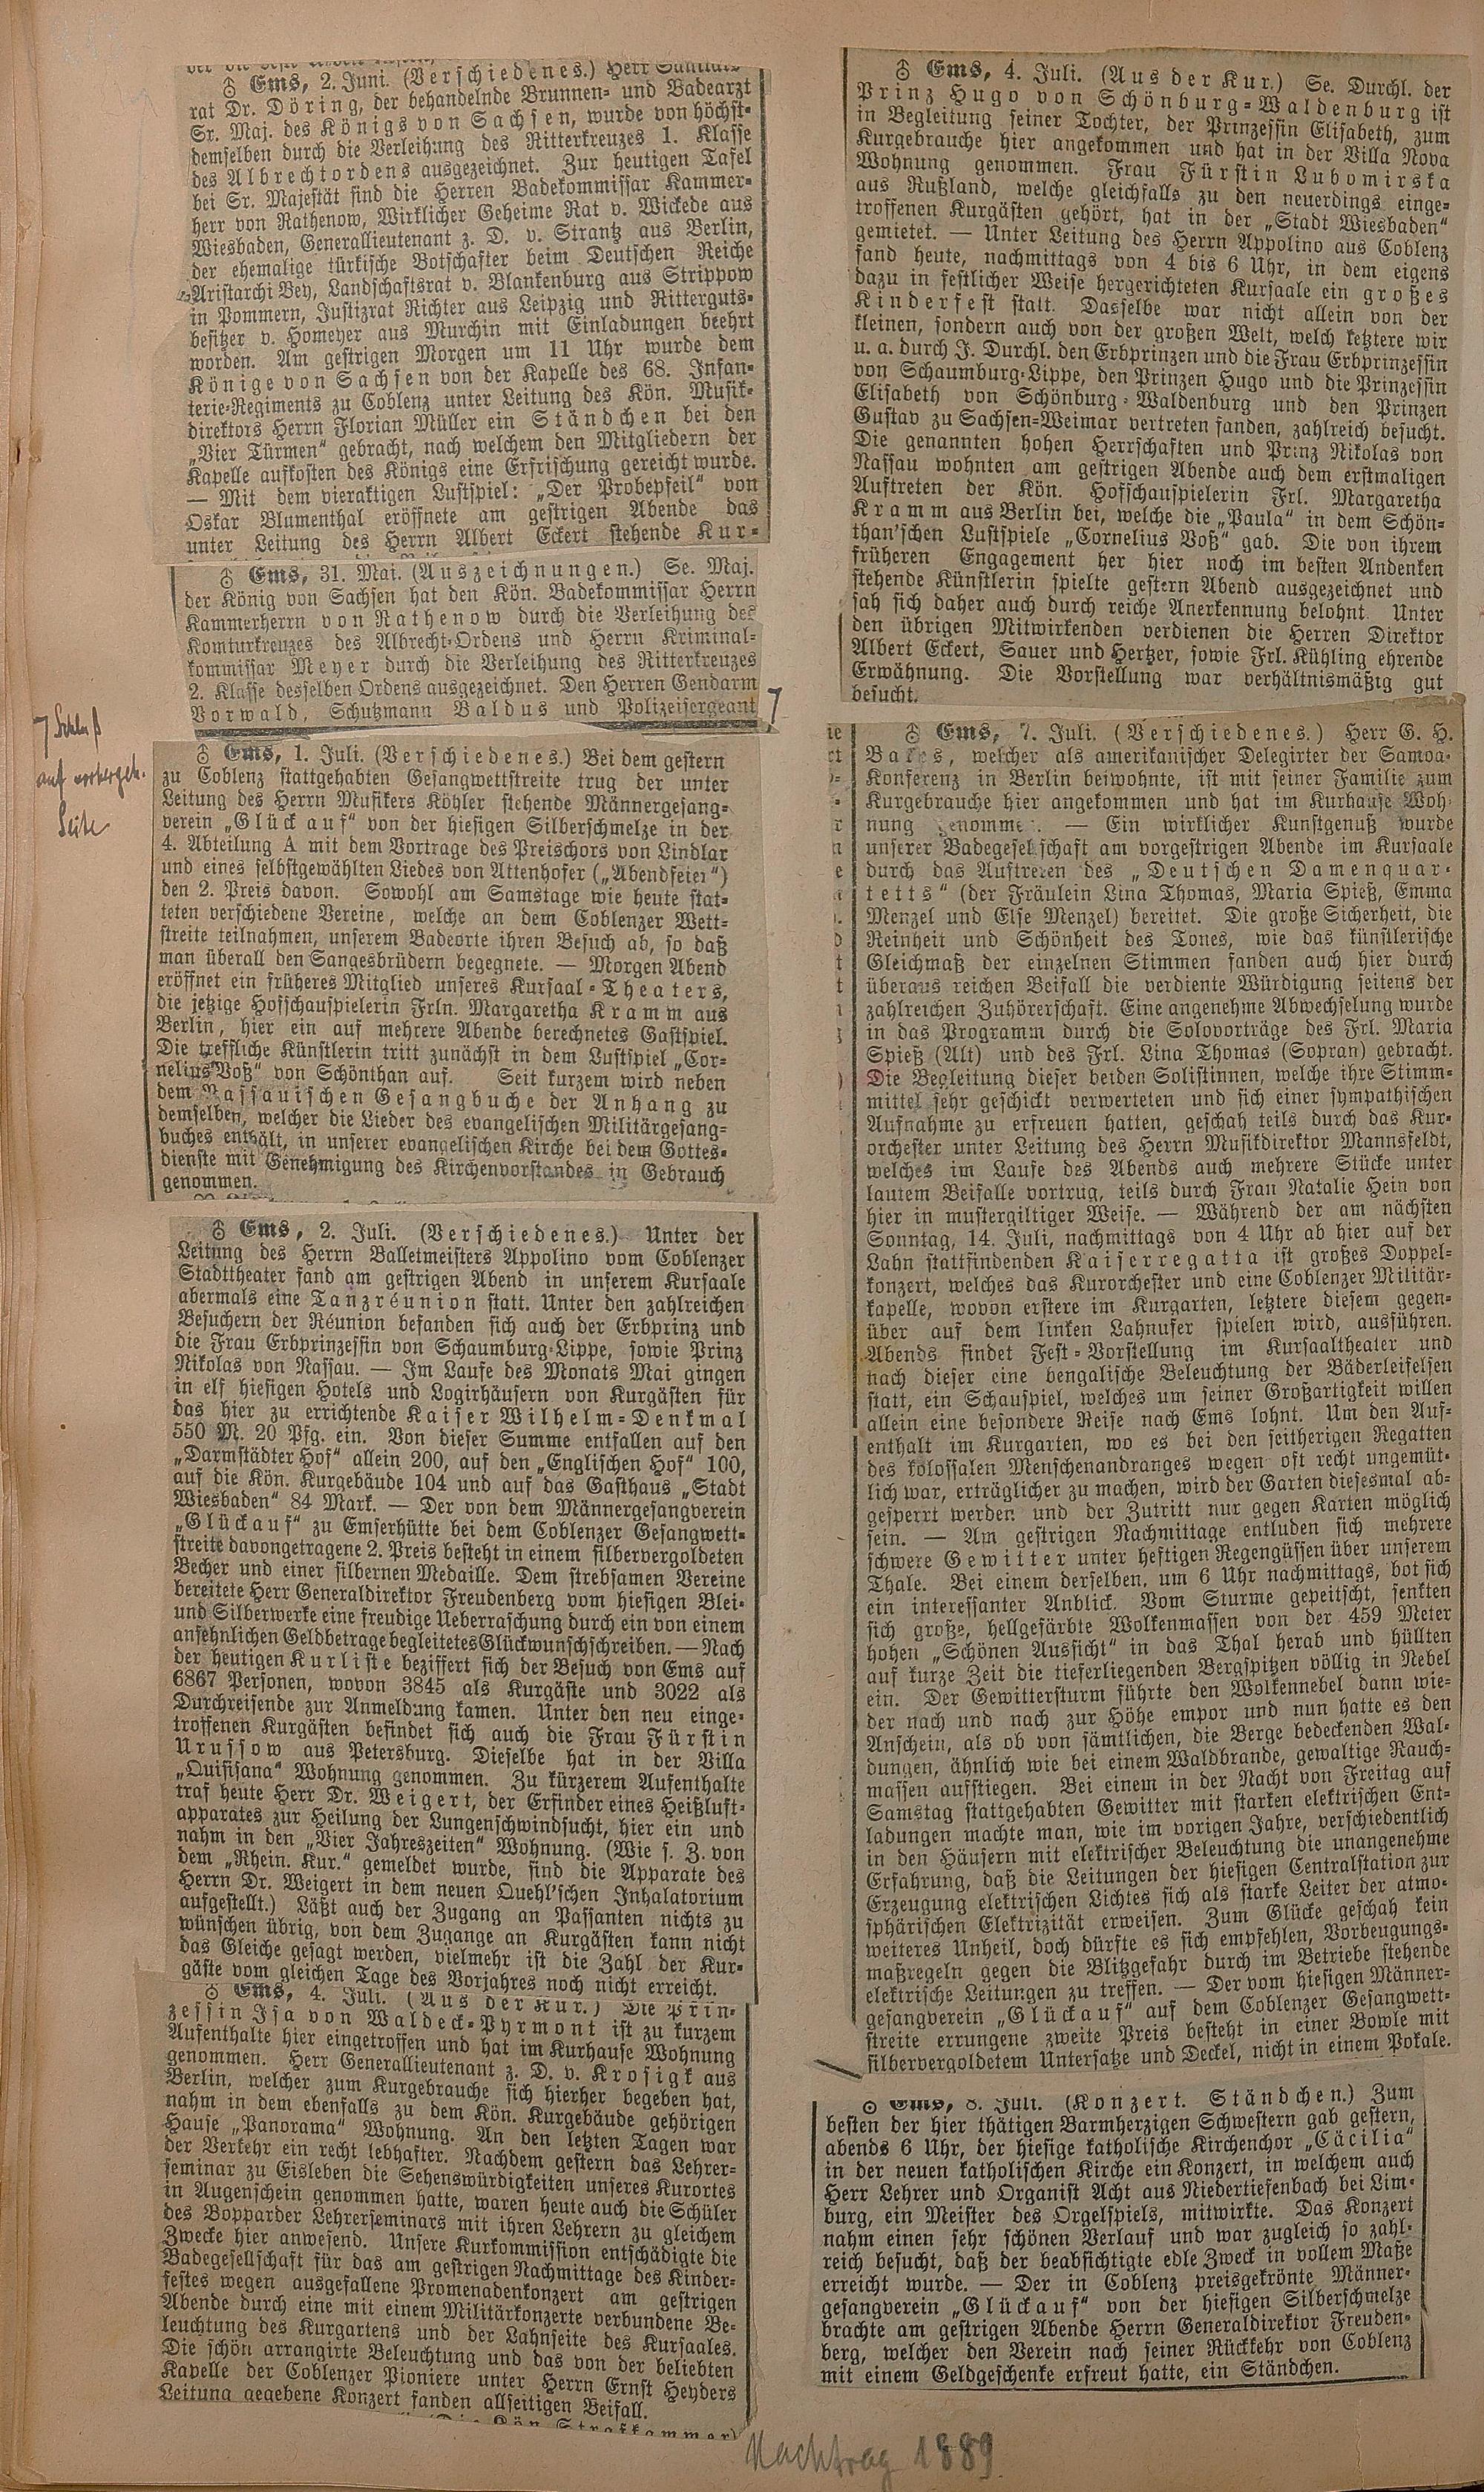 ♁ Ems, 2. Juni. (Verschiedenes.) Herr Sanitäts-
rat Dr. Döring, der behandelnde Brunnen- und Badearzt
Sr. Maj. des Königs von Sachsen, wurde von höchst-
demselben durch die Verleihung des Ritterkreuzes 1. Klasse
des Albrechtordens ausgezeichnet. Zur heutigen Tafel
bei Sr. Majestät sind die Herren Badekommissar Kammer-
herr von Rathenow, Wirklicher Geheime Rat v. Wickede aus
Wiesbaden, Generallieutenant z. D. v. Strantz aus Berlin,
der ehemalige türkische Botschafter beim Deutschen Reiche
Aristarchi Bey, Landschaftsrat v. Blankenburg aus Strippow
in Pommern, Justizrat Richter aus Leipzig und Ritterguts-
besitzer v. Homeyer aus Murchin mit Einladungen beehrt
worden. Am gestrigen Morgen um 11 Uhr wurde dem
Könige von Sachsen von der Kapelle des 68. Infan-
terie-Regiments zu Coblenz unter Leitung des Kön. Musik-
direktors Herrn Florian Müller ein Ständchen bei den
„Vier Türmen“ gebracht, nach welchem den Mitgliedern der
Kapelle aufkosten des Königs eine Erfrischung gereicht wurde.
— Mit dem vieraktigen Lustspiel: „Der Probepfeil“ von
Oskar Blumenthal eröffnete am gestrigen Abende das
unter Leitung des Herrn Albert Eckert stehende Kur-
♁ Ems, 31. Mai. (Auszeichnungen.) Se. Maj.
der König von Sachsen hat den Kön. Badekommissar Herrn
Kammerherrn von Rathenow durch die Verleihung des
Komturkreuzes des Albrecht-Ordens und Herrn Kriminal-
kommissar Meyer durch die Verleihung des Ritterkreuzes
2. Klasse desselben Ordens ausgezeichnet. Den Herren Gendarm
Vorwald, Schutzmann Baldus und Polizeisergeant
Schluß
auf vorhergeh.
Seite
♁ Ems, 1. Juli. (Verschiedenes.) Bei dem gestern
zu Coblenz stattgehabten Gesangwettstreite trug der unter
Leitung des Herrn Musikers Köhler stehende Männergesang-
verein „Glückauf“ von der hiesigen Silberschmelze in der
4. Abteilung A mit dem Vortrage des Preischors von Lindlar
und eines selbstgewählten Liedes von Attenhofer („Abendfeier“)
den 2. Preis davon. Sowohl am Samstage wie heute stat-
teten verschiedene Vereine, welche an dem Coblenzer Wett-
streite teilnahmen, unserem Badeorte ihren Besuch ab, so daß
man überall den Sangesbrüdern begegnete. — Morgen Abend
eröffnet ein früheres Mitglied unseres Kursaal-Theaters,
die jetzige Hofschauspielerin Frln. Margaretha Kramm aus
Berlin, hier ein auf mehrere Abende berechnetes Gastspiel.
Die treffliche Künstlerin tritt zunächst in dem Lustspiel „Cor-
nelius Voß“ von Schönthan auf. Seit kurzem wird neben
dem Nassauischen Gesangbuche der Anhang zu
demselben, welcher die Lieder des evangelischen Militärgesang-
buches enthält, in unserer evangelischen Kirche bei dem Gottes-
dienste mit Genehmigung des Kirchenvorstandes in Gebrauch
genommen.
♁ Ems, 2. Juli. (Verschiedenes.) Unter der
Leitung des Herrn Balletmeisters Appolino vom Coblenzer
Stadttheater fand am gestrigen Abend in unserem Kursaale
abermals eine Tanzréunion statt. Unter den zahlreichen
Besuchern der Réunion befanden sich auch der Erbprinz und
die Frau Erbprinzessin von Schaumburg-Lippe, sowie Prinz
Nikolas von Nassau. — Im Laufe des Monats Mai gingen
in elf hiesigen Hotels und Logirhäusern von Kurgästen für
das hier zu errichtende Kaiser Wilhelm-Denkmal
550 M. 20 Pfg. ein. Von dieser Summe entfallen auf den
„Darmstädter Hof“ allein 200, auf den „Englischen Hof“ 100,
auf die Kön. Kurgebäude 104 und auf das Gasthaus „Stadt
Wiesbaden“ 84 Mark. — Der von dem Männergesangverein
„Glückauf“ zu Emserhütte bei dem Coblenzer Gesangwett-
streite davongetragene 2. Preis besteht in einem silbervergoldeten
Becher und einer silbernen Medaille. Dem strebsamen Vereine
bereitete Herr Generaldirektor Freudenberg vom hiesigen Blei-
und Silberwerke eine freudige Ueberraschung durch ein von einem
ansehnlichen Geldbetrage begleitetes Glückwunschschreiben. — Nach
der heutigen Kurliste beziffert sich der Besuch von Ems auf
6867 Personen, wovon 3845 als Kurgäste und 3022 als
Durchreisende zur Anmeldung kamen. Unter den neu einge-
troffenen Kurgästen befindet sich auch die Frau Fürstin
Urussow aus Petersburg. Dieselbe hat in der Villa
„Quisisana“ Wohnung genommen. Zu kürzerem Aufenthalte
traf heute Herr Dr. Weigert, der Erfinder eines Heißluft-
apparates zur Heilung der Lungenschwindsucht, hier ein und
nahm in den „Vier Jahreszeiten“ Wohnung. (Wie s. Z. von
dem „Rhein. Kur.“ gemeldet wurde, sind die Apparate des
Herrn Dr. Weigert in dem neuen Quehl'schen Inhalatorium
aufgestellt.) Läßt auch der Zugang an Passanten nichts zu
wünschen übrig, von dem Zugange an Kurgästen kann nicht
das Gleiche gesagt werden, vielmehr ist die Zahl der Kur-
gäste vom gleichen Tage des Vorjahres noch nicht erreicht.
♁ Ems, 4. Juli. (Aus der Kur.) Die Prin-
zessin Isa von Waldeck-Pyrmont ist zu kurzem
Aufenthalte hier eingetroffen und hat im Kurhause Wohnung
genommen. Herr Generallieutenant z. D. v. Krosigk aus
Berlin, welcher zum Kurgebrauche sich hierher begeben hat,
nahm in dem ebenfalls zu dem Kön. Kurgebäude gehörigen
Hause „Panorama“ Wohnung. An den letzten Tagen war
der Verkehr ein recht lebhafter. Nachdem gestern das Lehrer-
seminar zu Eisleben die Sehenswürdigkeiten unseres Kurortes
in Augenschein genommen hatte, waren heute auch die Schüler
des Bopparder Lehrerseminars mit ihren Lehrern zu gleichem
Zwecke hier anwesend. Unsere Kurkommission entschädigte die
Badegesellschaft für das am gestrigen Nachmittage des Kinder-
festes wegen ausgefallene Promenadenkonzert am gestrigen
Abende durch eine mit einem Militärkonzerte verbundene Be-
leuchtung des Kurgartens und der Lahnseite des Kursaales.
Die schön arrangirte Beleuchtung und das von der beliebten
Kapelle der Coblenzer Pioniere unter Herrn Ernst Heyders
Leitung gegebene Konzert fanden allseitigen Beifall.
♁ Ems, 4. Juli. (Aus der Kur.) Se. Durchl. der
Prinz Hugo von Schönburg-Waldenburg ist
in Begleitung seiner Tochter, der Prinzessin Elisabeth, zum
Kurgebrauche hier angekommen und hat in der Villa Nova
Wohnung genommen. Frau Fürstin Lubomirska
aus Rußland, welche gleichfalls zu den neuerdings einge-
troffenen Kurgästen gehört, hat in der „Stadt Wiesbaden“
gemietet. — Unter Leitung des Herrn Appolino aus Coblenz
fand heute, nachmittags von 4 bis 6 Uhr, in dem eigens
dazu in festlicher Weise hergerichteten Kursaale ein großes
Kinderfest statt. Dasselbe war nicht allein von der
kleinen, sondern auch von der großen Welt, welch letztere wir
u. a. durch J. Durchl. den Erbprinzen und die Frau Erbprinzessin
von Schaumburg-Lippe, den Prinzen Hugo und die Prinzessin
Elisabeth von Schönburg-Waldenburg und den Prinzen
Gustav zu Sachsen-Weimar vertreten fanden, zahlreich besucht.
Die genannten hohen Herrschaften und Prinz Nikolas von
Nassau wohnten am gestrigen Abende auch dem erstmaligen
Auftreten der Kön. Hofschauspielerin Frl. Margaretha
Kramm aus Berlin bei, welche die „Paula“ in dem Schön-
than'schen Lustspiele „Cornelius Voß“ gab. Die von ihrem
früheren Engagement her hier noch im besten Andenken
stehende Künstlerin spielte gestern Abend ausgezeichnet und
sah sich daher auch durch reiche Anerkennung belohnt. Unter
den übrigen Mitwirkenden verdienen die Herren Direktor
Albert Eckert, Sauer und Hertzer, sowie Frl. Kühling ehrende
Erwähnung. Die Vorstellung war verhältnismäßig gut
besucht.
♁ Ems, 7. Juli. (Verschiedenes.) Herr G. H.
Bates, welcher als amerikanischer Delegirter der Samoa-
Konferenz in Berlin beiwohnte, ist mit seiner Familie zum
Kurgebrauche hier angekommen und hat im Kurhause Woh-
nung genommen. — Ein wirklicher Kunstgenuß wurde
unserer Badegesellschaft am vorgestrigen Abende im Kursaale
durch das Auftreten des „Deutschen Damenquar-
tetts“ (der Fräulein Lina Thomas, Maria Spieß, Emma
Menzel und Else Menzel) bereitet. Die große Sicherheit, die
Reinheit und Schönheit des Tones, wie das künstlerische
Gleichmaß der einzelnen Stimmen fanden auch hier durch
überaus reichen Beifall die verdiente Würdigung seitens der
zahlreichen Zuhörerschaft. Eine angenehme Abwechselung wurde
in das Programm durch die Solovorträge des Frl. Maria
Spieß (Alt) und des Frl. Lina Thomas (Sopran) gebracht.
Die Begleitung dieser beiden Solistinnen, welche ihre Stimm-
mittel sehr geschickt verwerteten und sich einer sympathischen
Aufnahme zu erfreuen hatten, geschah teils durch das Kur-
orchester unter Leitung des Herrn Musikdirektor Mannsfeldt,
welches im Laufe des Abends auch mehrere Stücke unter
lautem Beifalle vortrug, teils durch Frau Natalie Hein von
hier in mustergiltiger Weise. — Während der am nächsten
Sonntag, 14. Juli, nachmittags von 4 Uhr ab hier auf der
Lahn stattfindenden Kaiserregatta ist großes Doppel-
konzert, welches das Kurorchester und eine Coblenzer Militär-
kapelle, wovon erstere im Kurgarten, letztere diesem gegen-
über auf dem linken Lahnufer spielen wird, ausführen.
Abends findet Fest-Vorstellung im Kursaaltheater und
nach dieser eine bengalische Beleuchtung der Bäderleifelsen
statt, ein Schauspiel, welches um seiner Großartigkeit willen
allein eine besondere Reise nach Ems lohnt. Um den Auf-
enthalt im Kurgarten, wo es bei den seitherigen Regatten
des kolossalen Menschenandranges wegen oft recht ungemüt-
lich war, erträglicher zu machen, wird der Garten diesesmal ab-
gesperrt werden und der Zutritt nur gegen Karten möglich
sein. — Am gestrigen Nachmittage entluden sich mehrere
schwere Gewitter unter heftigen Regengüssen über unserem
Thale. Bei einem derselben, um 6 Uhr nachmittags, bot sich
ein interessanter Anblick. Vom Sturme gepeitscht, senkten
sich große, hellgefärbte Wolkenmassen von der 459 Meter
hohen „Schönen Aussicht“ in das Thal herab und hüllten
auf kurze Zeit die tieferliegenden Bergspitzen völlig in Nebel
ein. Der Gewittersturm führte den Wolkennebel dann wie-
der nach und nach zur Höhe empor und nun hatte es den
Anschein, als ob von sämtlichen, die Berge bedeckenden Wal-
dungen, ähnlich wie bei einem Waldbrande, gewaltige Rauch-
massen aufstiegen. Bei einem in der Nacht von Freitag auf
Samstag stattgehabten Gewitter mit starken elektrischen Ent-
ladungen machte man, wie im vorigen Jahre, verschiedentlich
in den Häusern mit elektrischer Beleuchtung die unangenehme
Erfahrung, daß die Leitungen der hiesigen Centralstation zur
Erzeugung elektrischen Lichtes sich als starke Leiter der atmo-
sphärischen Elektrizität erweisen. Zum Glücke geschah kein
weiteres Unheil, doch dürfte es sich empfehlen, Vorbeugungs-
maßregeln gegen die Blitzgefahr durch im Betriebe stehende
elektrische Leitungen zu treffen. — Der vom hiesigen Männer-
gesangverein „Glückauf“ auf dem Coblenzer Gesangwett-
streite errungene zweite Preis besteht in einer Bowle mit
silbervergoldetem Untersatze und Deckel, nicht in einem Pokale.
♁ Ems, 8. Juli. (Konzert. Ständchen.) Zum
besten der hier thätigen Barmherzigen Schwestern gab gestern,
abends 6 Uhr, der hiesige katholische Kirchenchor „Cäcilia“
in der neuen katholischen Kirche ein Konzert, in welchem auch
Herr Lehrer und Organist Acht aus Niedertiefenbach bei Lim-
burg, ein Meister des Orgelspiels, mitwirkte. Das Konzert
nahm einen sehr schönen Verlauf und war zugleich so zahl-
reich besucht, daß der beabsichtigte edle Zweck in vollem Maße
erreicht wurde. — Der in Coblenz preisgekrönte Männer-
gesangverein „Glückauf“ von der hiesigen Silberschmelze
brachte am gestrigen Abende Herrn Generaldirektor Freuden-
berg, welcher den Verein nach seiner Rückkehr von Coblenz
mit einem Geldgeschenke erfreut hatte, ein Ständchen.
Nachtrag 1889